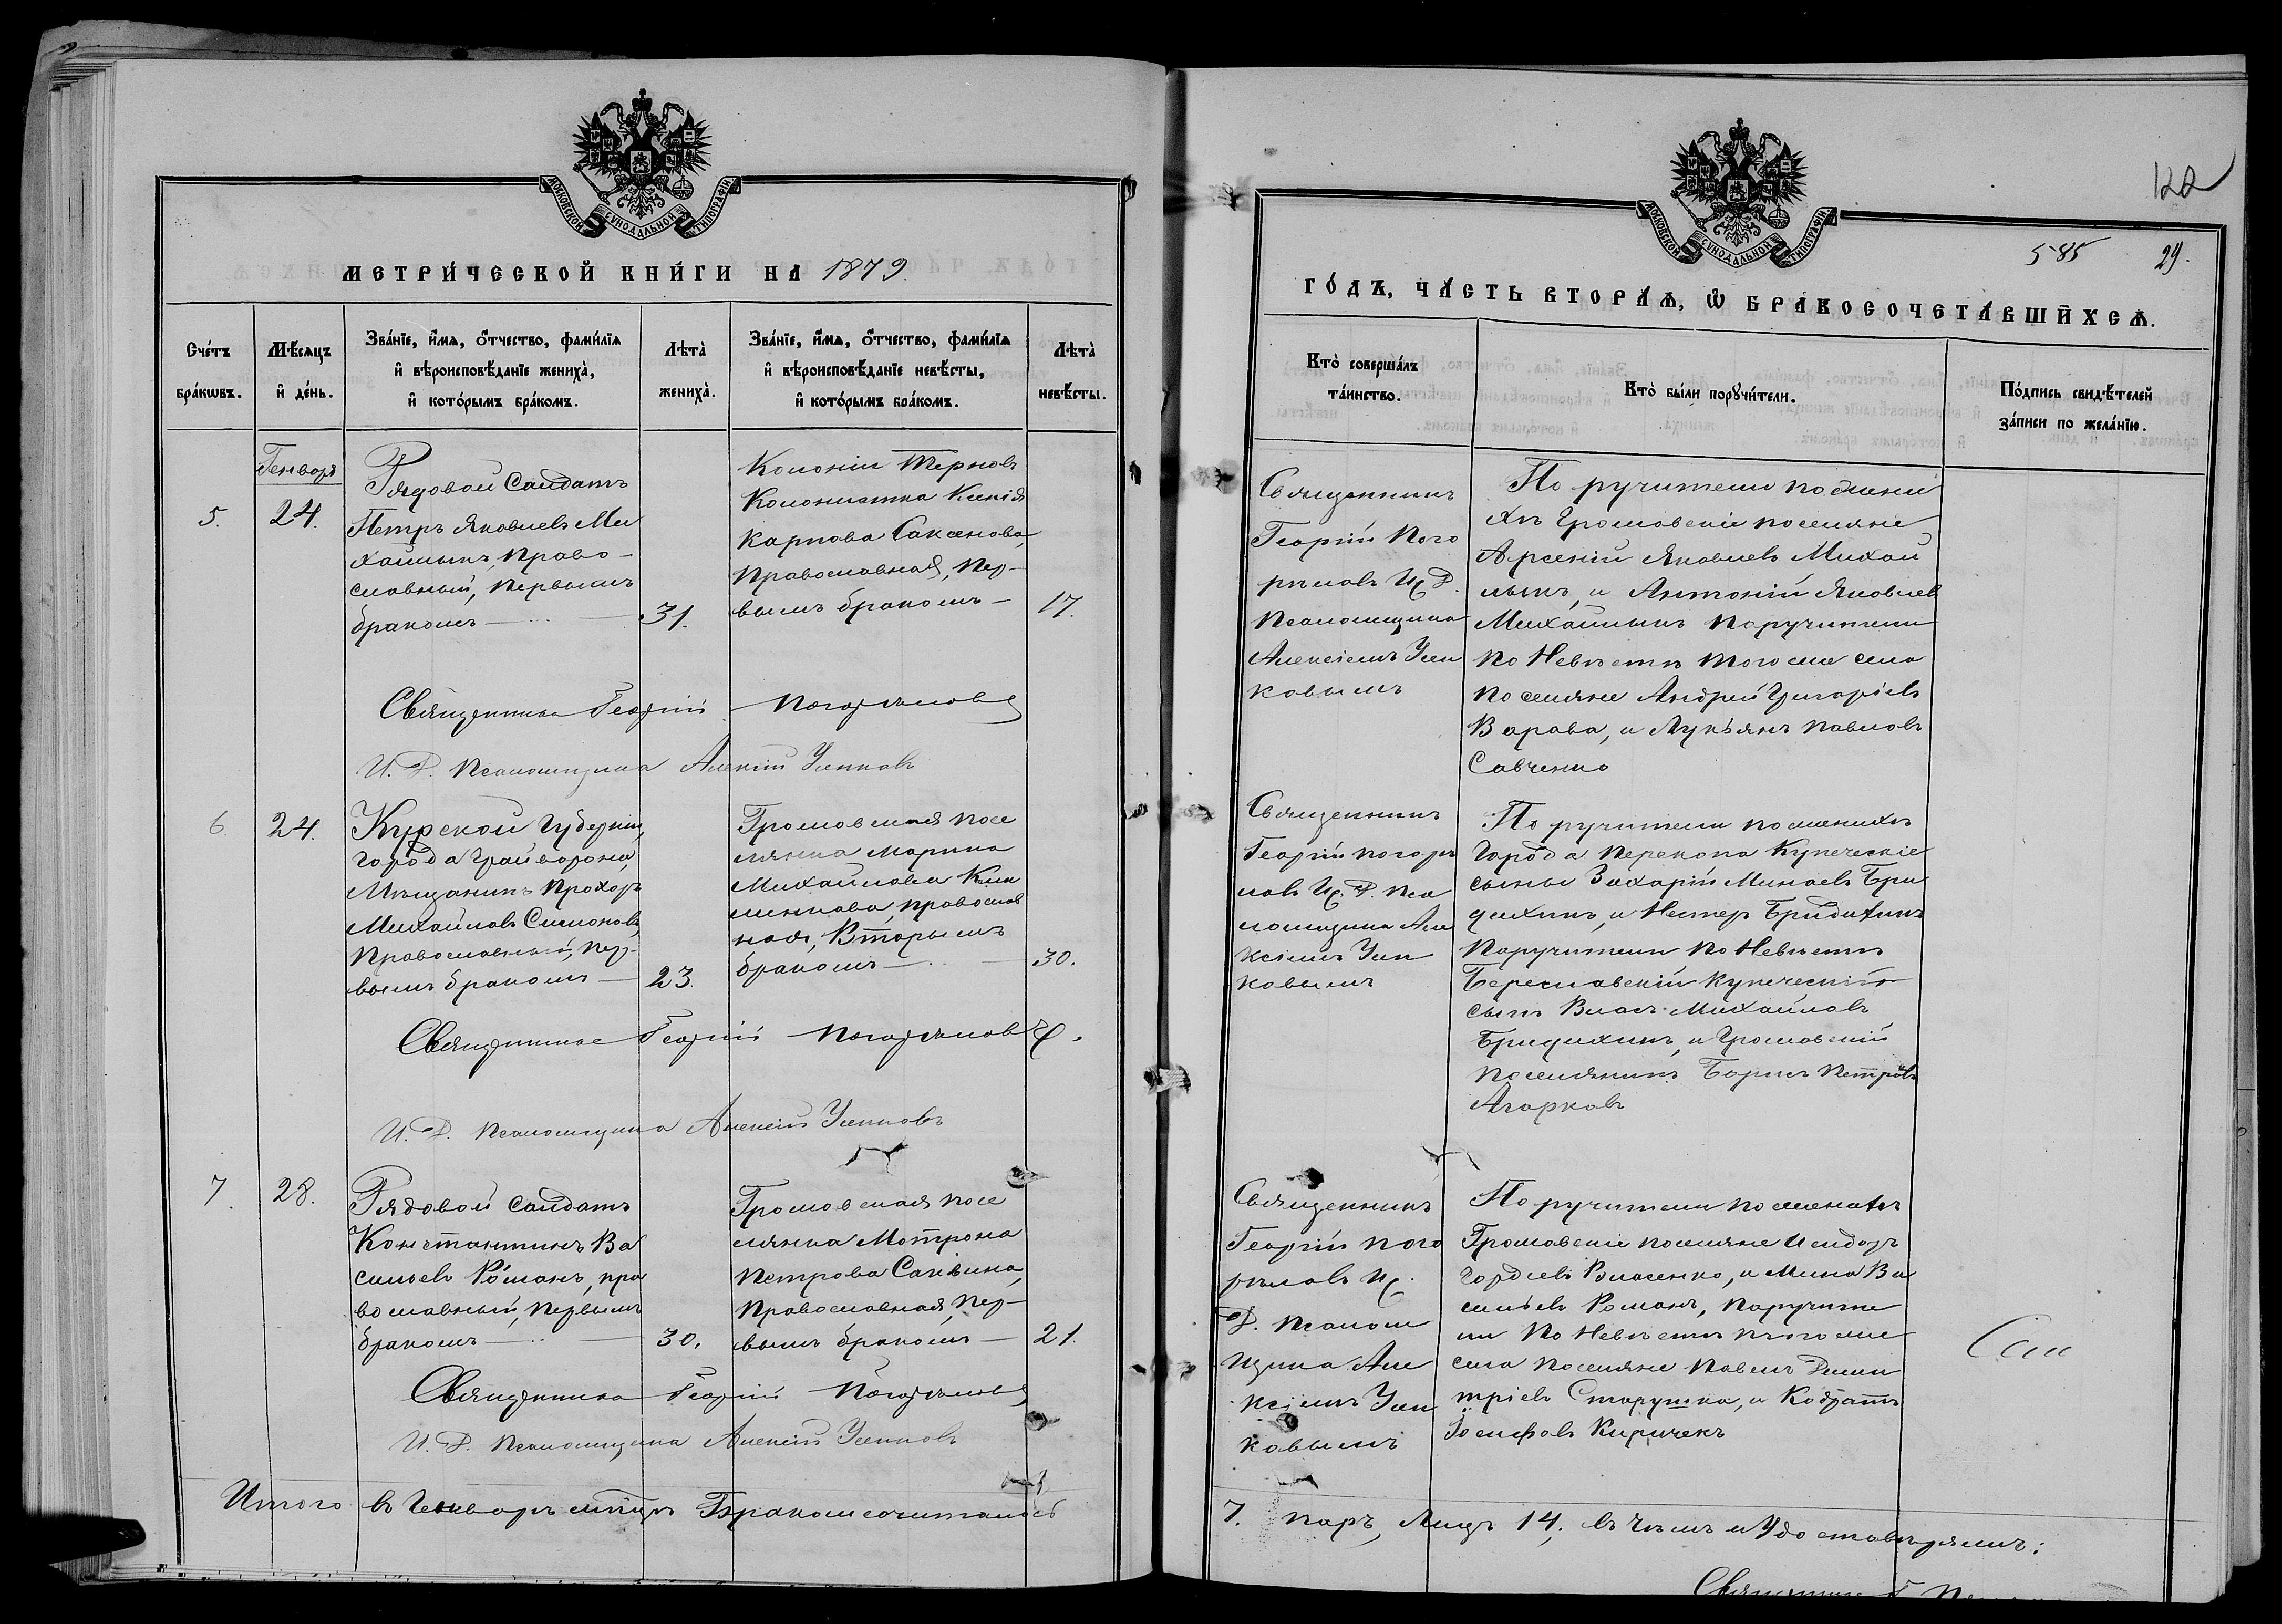 МОСКОВСКОЙ СѴНОДАЛЬНОЙ ТИПОГРАФІИ
МЕТРИ́ЧЕСКОЙ КНИ́ГИ НА 1879.
Сче́тъ бра́кωвъ.
Мѣ́сяцъ и҆ де́нь.
Зва́нїе, и҆́мѧ, ѻ҆́тчество, фамѝлїѧ
и҆ вѣроисповѣ́данїе женихà,
и҆ кото́рымъ бра́комъ.
Лѣтà женихà.
Зва́нїе, и҆́мѧ, ѻ҆́тчество, фамѝлїѧ
и҆ вѣроисповѣ́данїе невѣ́сты,
и҆ кото́рымъ бра́комъ.
Лѣтà невѣ́сты.
Генворя
5.
24.
Рядовой Салдатъ
Петръ Яковлевъ Ми
хайлыкъ, Право-
славный, Первымъ
бракомъ
31.
Колоніи Терновъ
Колонистка Ксенія
Карпова Саксонова,
Православная, Пер-
вымъ бракомъ
17.
Священникъ Георгій Погорѣловъ
И. Д. Псаломщика Алексій Усенковъ
6.
24.
Курской Губерніи,
города Грайворона,
Мѣщанинъ Прохоръ
Михайловъ Симоновъ
Православный, Пер-
вымъ бракомъ
23.
Громовская посе
лянка Марина
Михайлова Кли
менкова, православ
ная, Вторымъ
бракомъ
30.
Священникъ Георгій Погорѣловъ
И. Д. Псаломщика Алексій Усенковъ
7.
28.
Рядовой Салдатъ
Константинъ Ва
сильевъ Романъ, пра
вославный, Первымъ
бракомъ
30.
Громовская посе
лянка Мотрона
Петрова Саквина,
Православная, Пер-
вымъ бракомъ
21.
Священникъ Георгій Погорѣловъ
И. Д. Псаломщика Алексій Усенковъ
Итого въ Генворѣ мѣсяцѣ Бракомсочиталось
МОСКОВСКОЙ СѴНОДАЛЬНОЙ ТИПОГРАФІИ
122
585
29.
ГО́ДЪ, ЧА́СТЬ ВТОРА́Ѧ, Ѽ БРАКОСОЧЕТА́ВШИХСѦ.
Ктò соверша́лъ
та́инство.
Ктò бы́ли порꙋчи́тели.
По́дпись свидѣ́телей
за́писи по жела́нїю.
Священникъ
Георгій Пого
рѣловъ И. Д.
Псаломщика
Алексіемъ Усен
ковымъ
По ручители по жени
хѣ Громовскіе поселяне
Арсеній Яковлевъ Михай
лыкъ, и Антоній Яковлев
Михайлыкъ Поручители
По Невѣстѣ того же села
Поселяне Андрей Григоріевъ
Варава, и Лукъянъ Павловъ
Савченко
Священникъ
Георгій Погорѣ
ловъ И. Д. Пса
ломщика Але
ксіемъ Усен
ковымъ
По ручители по женихѣ
города Перекопа Купеческіе
сыны Захарій Минаевъ Бри
дихинъ, и Нестеръ Бридихинъ
Поручители По Невѣстѣ
Бериславскій Купеческій
сынъ Власъ Михайловъ
Бридихинъ, и Громовскій
поселянинъ Борисъ Петровъ
Агарковъ
Священникъ
Георгій Пого
рѣловъ И.
Д. Псалом
щика Але
ксіемъ Усен
ковымъ
По ручители по женихѣ
Громовскіе поселяне Исидоръ
Гордѣевъ Власенко, и Мина Ва
сильевъ Романъ, Поручите
ли По Невѣстѣ того же
села поселяне Павелъ Дими
тріевъ Старушка, и Кодратъ
Іосифовъ Киричекъ
7. паръ, Лицъ 14, въ чѣмъ и Удостовѣряемъ: